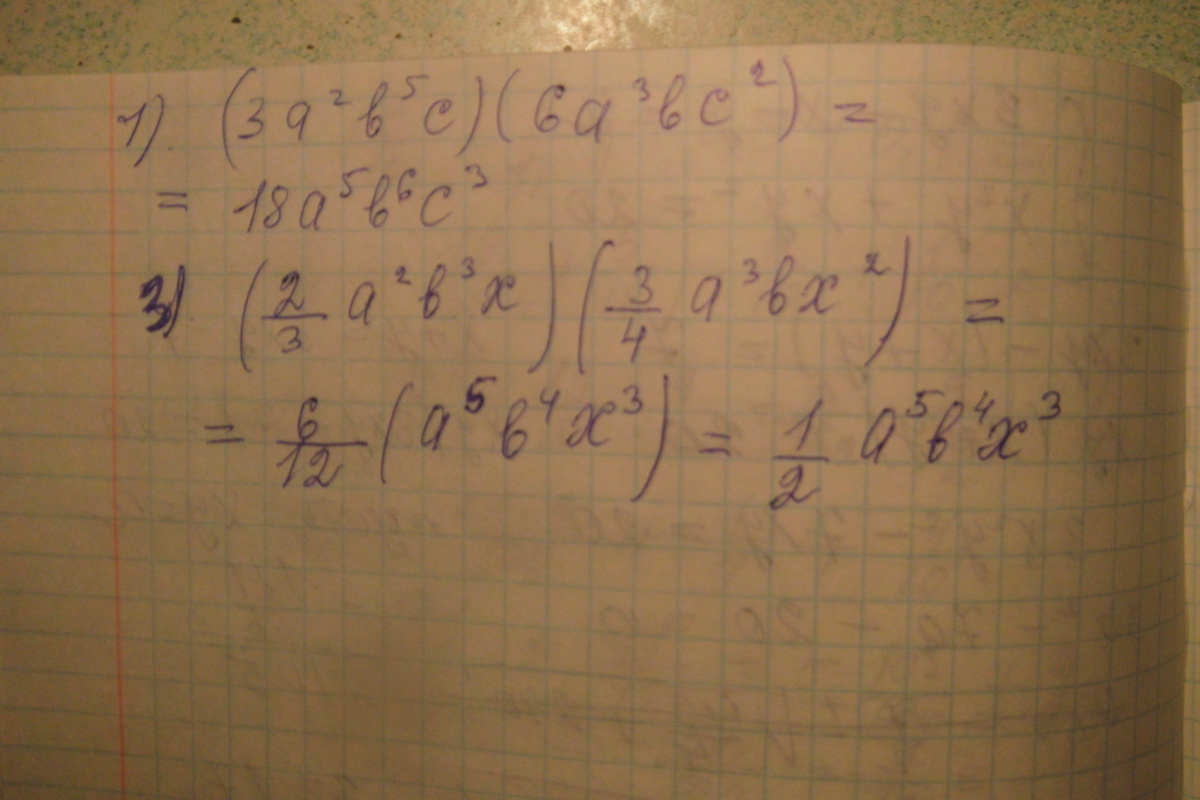 1) (3a²b⁵c)(6a³bc²) =
= 18a⁵b⁶c³
3) (2/3 a²b³x)(3/4 a³bx²) =
= 6/12 (a⁵b⁴x³) = 1/2 a⁵b⁴x³